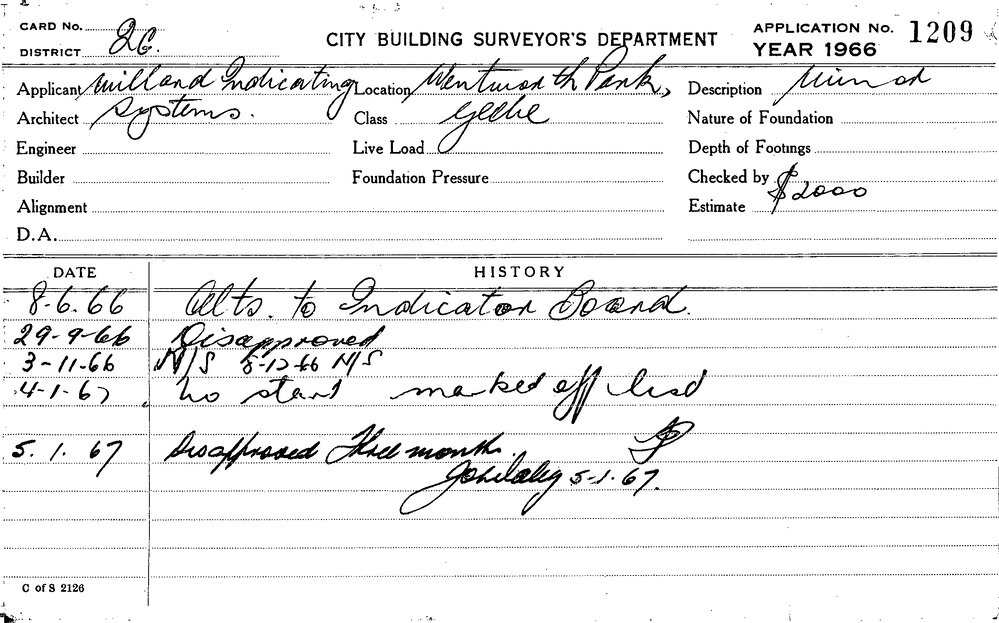 CARD No. 26. CITY BUILDING SURVEYOR'S DEPARTMENT APPLICATION No. 1209
DISTRICT YEAR 1966
Applicant Milland Indicating Location Wentworth Park, Description Minor
Architect Systems. Class Glebe Nature of Foundation
Engineer Live Load Depth of Footings
Builder Foundation Pressure Checked by
Alignment Estimate $2000
D.A.
DATE HISTORY
8.6.66 Alts. to Indicator Board.
29-9-66 Disapproved
3-11-66 N/S 8-12-66 N/S
4-1-67 No start marked off list
5.1.67 Disapproved Three months.
5-1-67.
C of S 2126